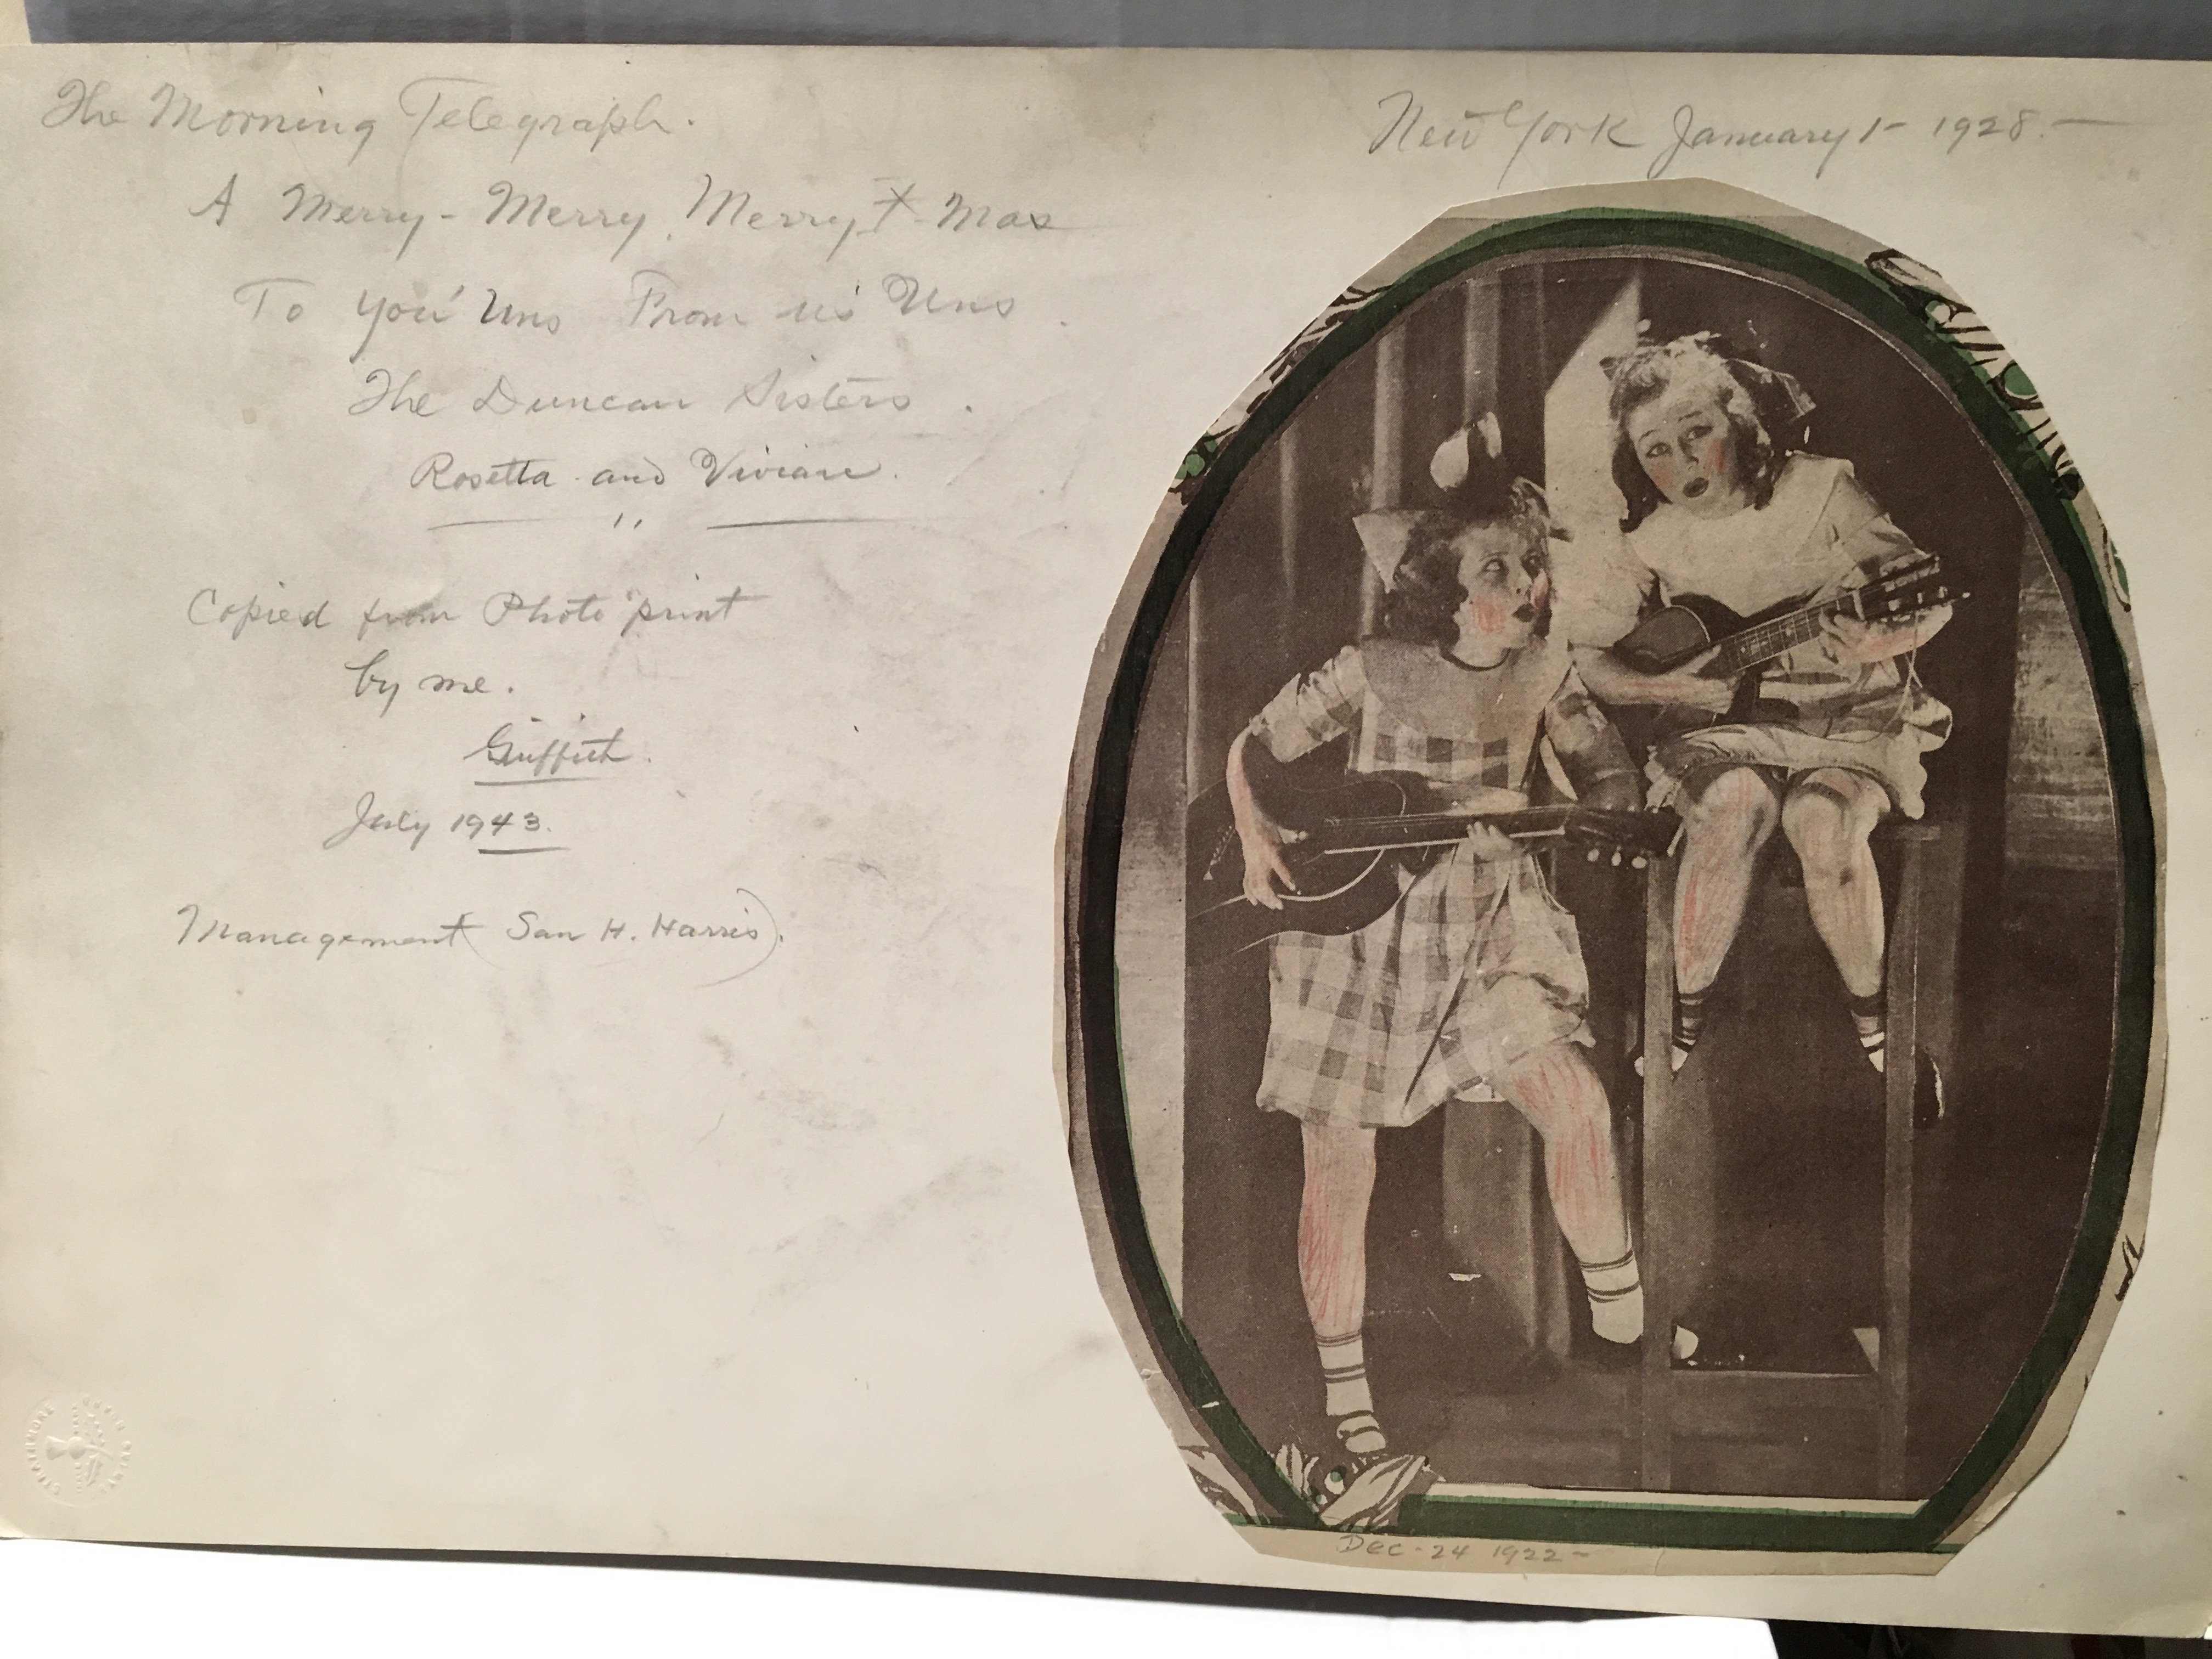 The Morning Telegraph.
New York January 1 - 1928. -
A Merry - Merry, Merry X-Mas
To You' Uns From us' Uns.
The Duncan Sisters.
Rosetta and Vivian.
"
Copied from Photo print
by me.
Griffith.
July 1943.
Management (Sam H. Harris).
STRATHMORE
Dec - 24 1922 -